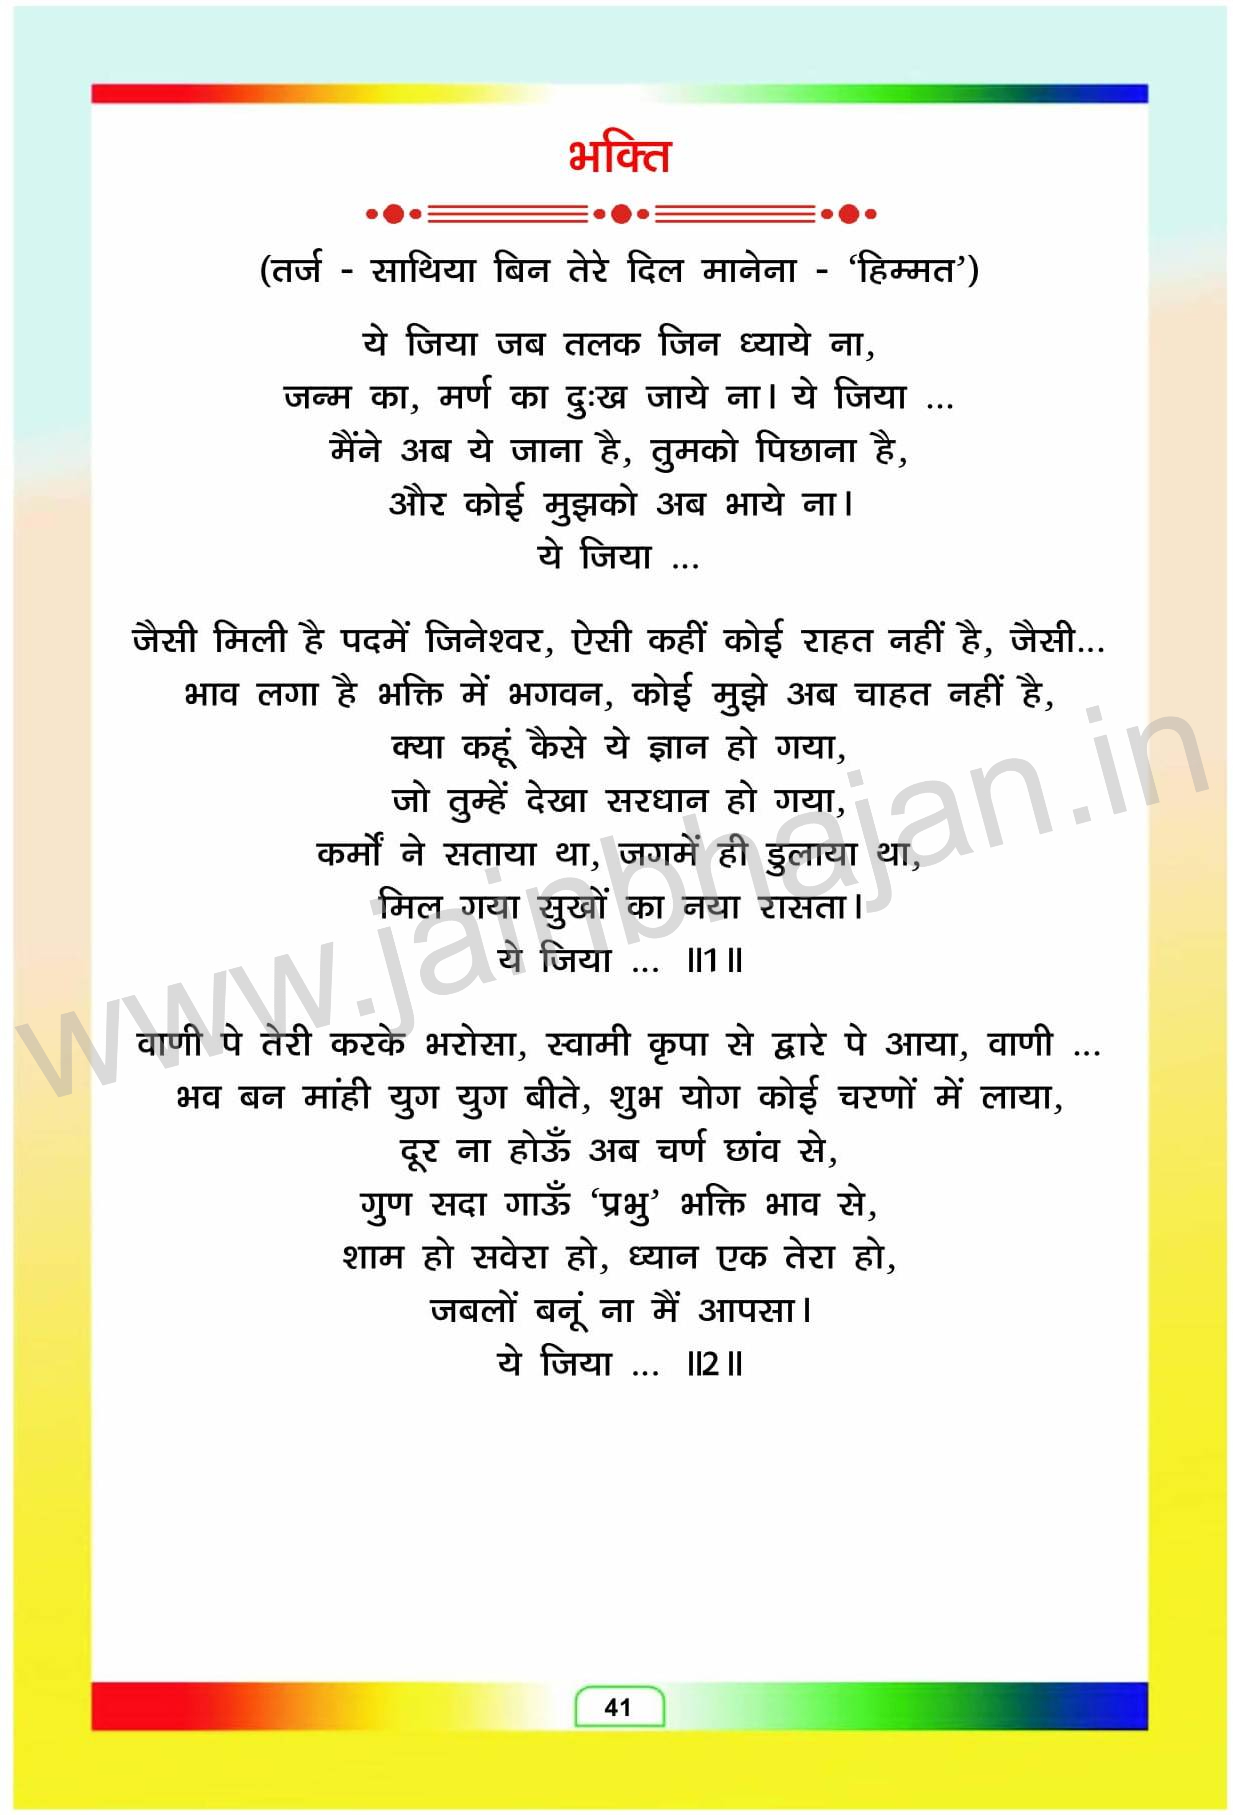 भक्ति
(तर्ज - साथिया बिन तेरे दिल मानेना - ‘हिम्मत’)
ये जिया जब तलक जिन ध्याये ना,
जन्म का, मर्ण का दुःख जाये ना। ये जिया ...
मैंने अब ये जाना है, तुमको पिछाना है,
और कोई मुझको अब भाये ना।
ये जिया ...
जैसी मिली है पदमें जिनेश्वर, ऐसी कहीं कोई राहत नहीं है, जैसी...
भाव लगा है भक्ति में भगवन, कोई मुझे अब चाहत नहीं है,
क्या कहूं कैसे ये ज्ञान हो गया,
जो तुम्हें देखा सरधान हो गया,
कर्मों ने सताया था, जगमें ही डुलाया था,
मिल गया सुखों का नया रासता।
ये जिया ... ॥1॥
वाणी पे तेरी करके भरोसा, स्वामी कृपा से द्वारे पे आया, वाणी ...
भव बन मांही युग युग बीते, शुभ योग कोई चरणों में लाया,
दूर ना होऊँ अब चर्ण छांव से,
गुण सदा गाऊँ ‘प्रभु’ भक्ति भाव से,
शाम हो सवेरा हो, ध्यान एक तेरा हो,
जबलों बनूं ना मैं आपसा।
ये जिया ... ॥2॥
www.jainbhajan.in
41